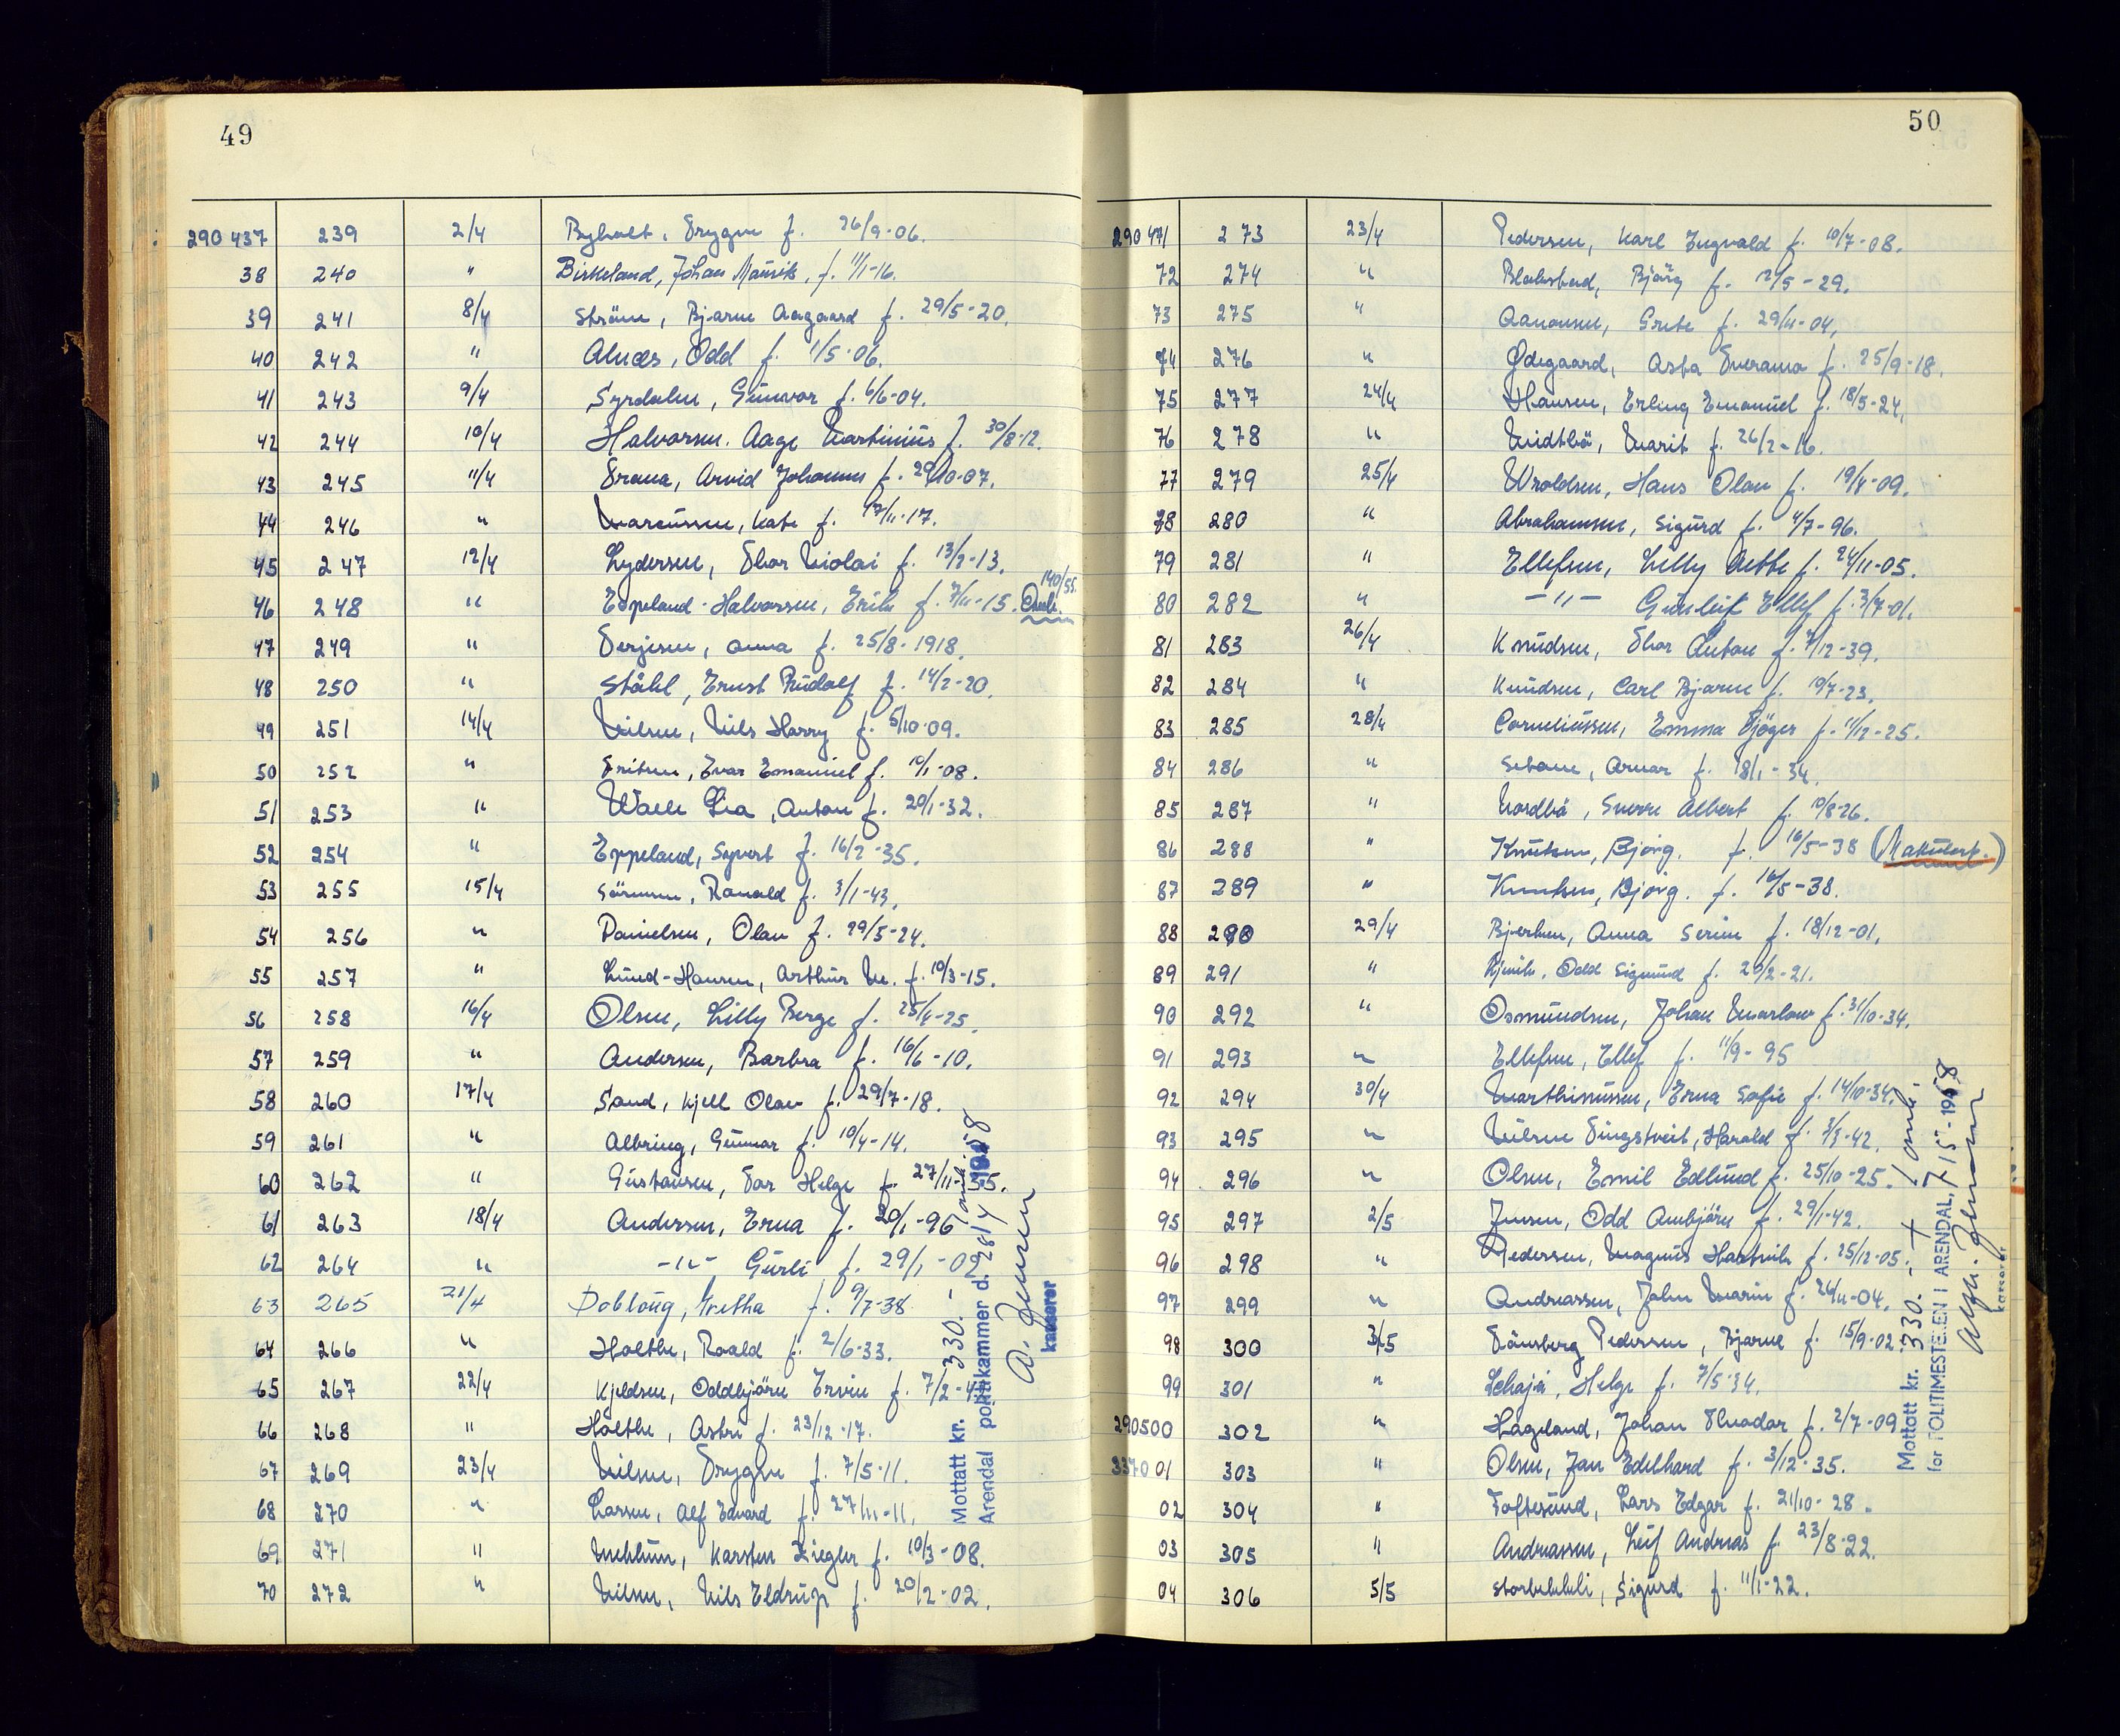 49
290 437 239 2/4 Byholt, Trygve f. 26/9-06.
38 240 " Birkeland, Johan Maurits, f. 11/1-16.
39 241 8/4 Strøm, Bjarne Aagaard f. 29/5-20.
40 242 " Alnæs, Odd f. 1/5-06.
41 243 9/4 Syrdalen, Gunvor f. 6/6-04.
42 244 10/4 Halvorsen. Aage Martinius f. 30/8-12.
43 245 11/4 Trana, Arvid Johannes f. 29/10-07.
44 246 " Marcussen, Kate f. 17/11-17.
45 247 12/4 Lydersen, Thor Nicolai f. 13/2-13.
46 248 " Espeland-Halvorsen, Erik f. 7/11-15. 140/55.
47 249 " Terjesen, Anna f. 25/8-1918.
48 250 " Ståhl, Ernst Rudolf f. 14/2-20.
49 251 14/4 Nilsen, Nils Harry f. 5/10-09.
50 252 " Ivar Emanuel f. 10/1-08.
51 253 " Waele Lia, Anton f. 20/1-32.
52 254 " Eppeland, Syvert f. 16/2-35.
53 255 15/4 Sørensen, Ronald f. 3/1-43.
54 256 " Danielsen, Olav f. 29/5-24.
55 257 " Lund-Hansen, Arthur M. f. 10/3-15.
56 258 16/4 Olsen, Lilly Berge f. 25/4-25.
57 259 " Andersen, Barbra f. 16/6-10.
58 260 17/4 Sand, Kjell Olav f. 29/7-18.
59 261 " Albring, Gunnar f. 10/4-14.
60 262 " Gustavsen, Tor Helge f. 27/11-55.
61 263 18/4 Andersen, Erna f. 20/1-96
62 264 " -"- Gurli f. 29/1-02
63 265 21/4 Dobloug, Gretha f. 9/7-38
64 266 " Holthe, Roald f. 2/6-33.
65 267 22/4 Kjeldsen, Oddbjørn Ervin f. 7/2-
66 268 " Holthe, Astri f. 23/12-17.
67 269 23/4 Nilsen, Trygve f. 7/5-11.
68 270 " Larsen, Alf Edvard f. 27/11-11.
69 271 " Mehlum, Karsten Ziegler f. 10/3-08.
70 272 " Nilsen, Nils Eldrup f. 20/2-02.
Mottatt kr. 330.-
Arendal politikammer d. 28/4 1958
A. Jensen
kasserer
50
290 471 273 23/4 Pedersen, Karl Ingvald f. 10/7-08.
72 274 " Blakstad, Bjørg f. 12/5-29.
73 275 " Aanonsen, Grete f. 29/11-04.
74 276 " Ødegaard, Asta Sverama f. 25/9-18.
75 277 24/4 Hansen, Erling Emanuel f. 18/5-24.
76 278 " Midtbø, Marit f. 26/2-16.
77 279 25/4 Wroldsen, Hans Olav f. 19/4-09.
78 280 " Abrahamsen, Sigurd f. 4/7-96.
79 281 " Ellefsen, Lilly Dette f. 24/11-05.
80 282 " -"- Gunleif Ellef f. 3/7-01.
81 283 26/4 Knudsen, Thor Anton f. 7/12-39.
82 284 " Knudsen, Carl Bjarne f. 19/7-23.
83 285 28/4 Corneliussen, Emma Tjøger f. 11/12-25.
84 286 " Setane, Arnar f. 18/1-34.
85 287 " Nordbø, Sverre Albert f. 10/8-26.
86 288 " Knutsen, Bjørg. f. 16/5-38 (Makulert.)
87 289 " Knutsen, Bjørg. f. 16/5-38.
88 290 29/4 Bjerken, Anna Serine f. 18/12-01.
89 291 " Odd Sigmund f. 20/2-21.
90 292 " Osmundsen, Johan Marlow f. 31/10-34.
91 293 " Ellefsen, Ellef f. 11/9-95
92 294 30/4 Marthinussen, Erna Sofie f. 14/10-34.
93 295 " Nilsen Tingstveit, Harald f. 3/3-42.
94 296 " Olsen, Emil Edlund f. 25/10-25.
95 297 2/5 Jensen, Odd Arnbjørn f. 29/1-42.
96 298 " Pedersen, Magnus Hartvik f. 25/12-05.
97 299 " Andreassen, John Marin f. 26/11-04.
98 300 3/5 Tønsberg Pedersen, Bjarne f. 15/9-02
99 301 " Helge f. 7/5-34.
290500 302 " Hageland, Johan Thvadar f. 2/7-09
3370 01 303 " Olsen, Jan Edelhard f. 3/12-35.
02 304 " Toftesund, Lars Edgar f. 21/10-28.
03 305 " Andreassen, Leif Andreas f. 23/8-22.
04 306 5/5 Sigurd f. 11/1-22.
Mottatt kr. 330.-
for POLITIMESTEREN I ARENDAL, 7/5-1958
Jensen
kasserer